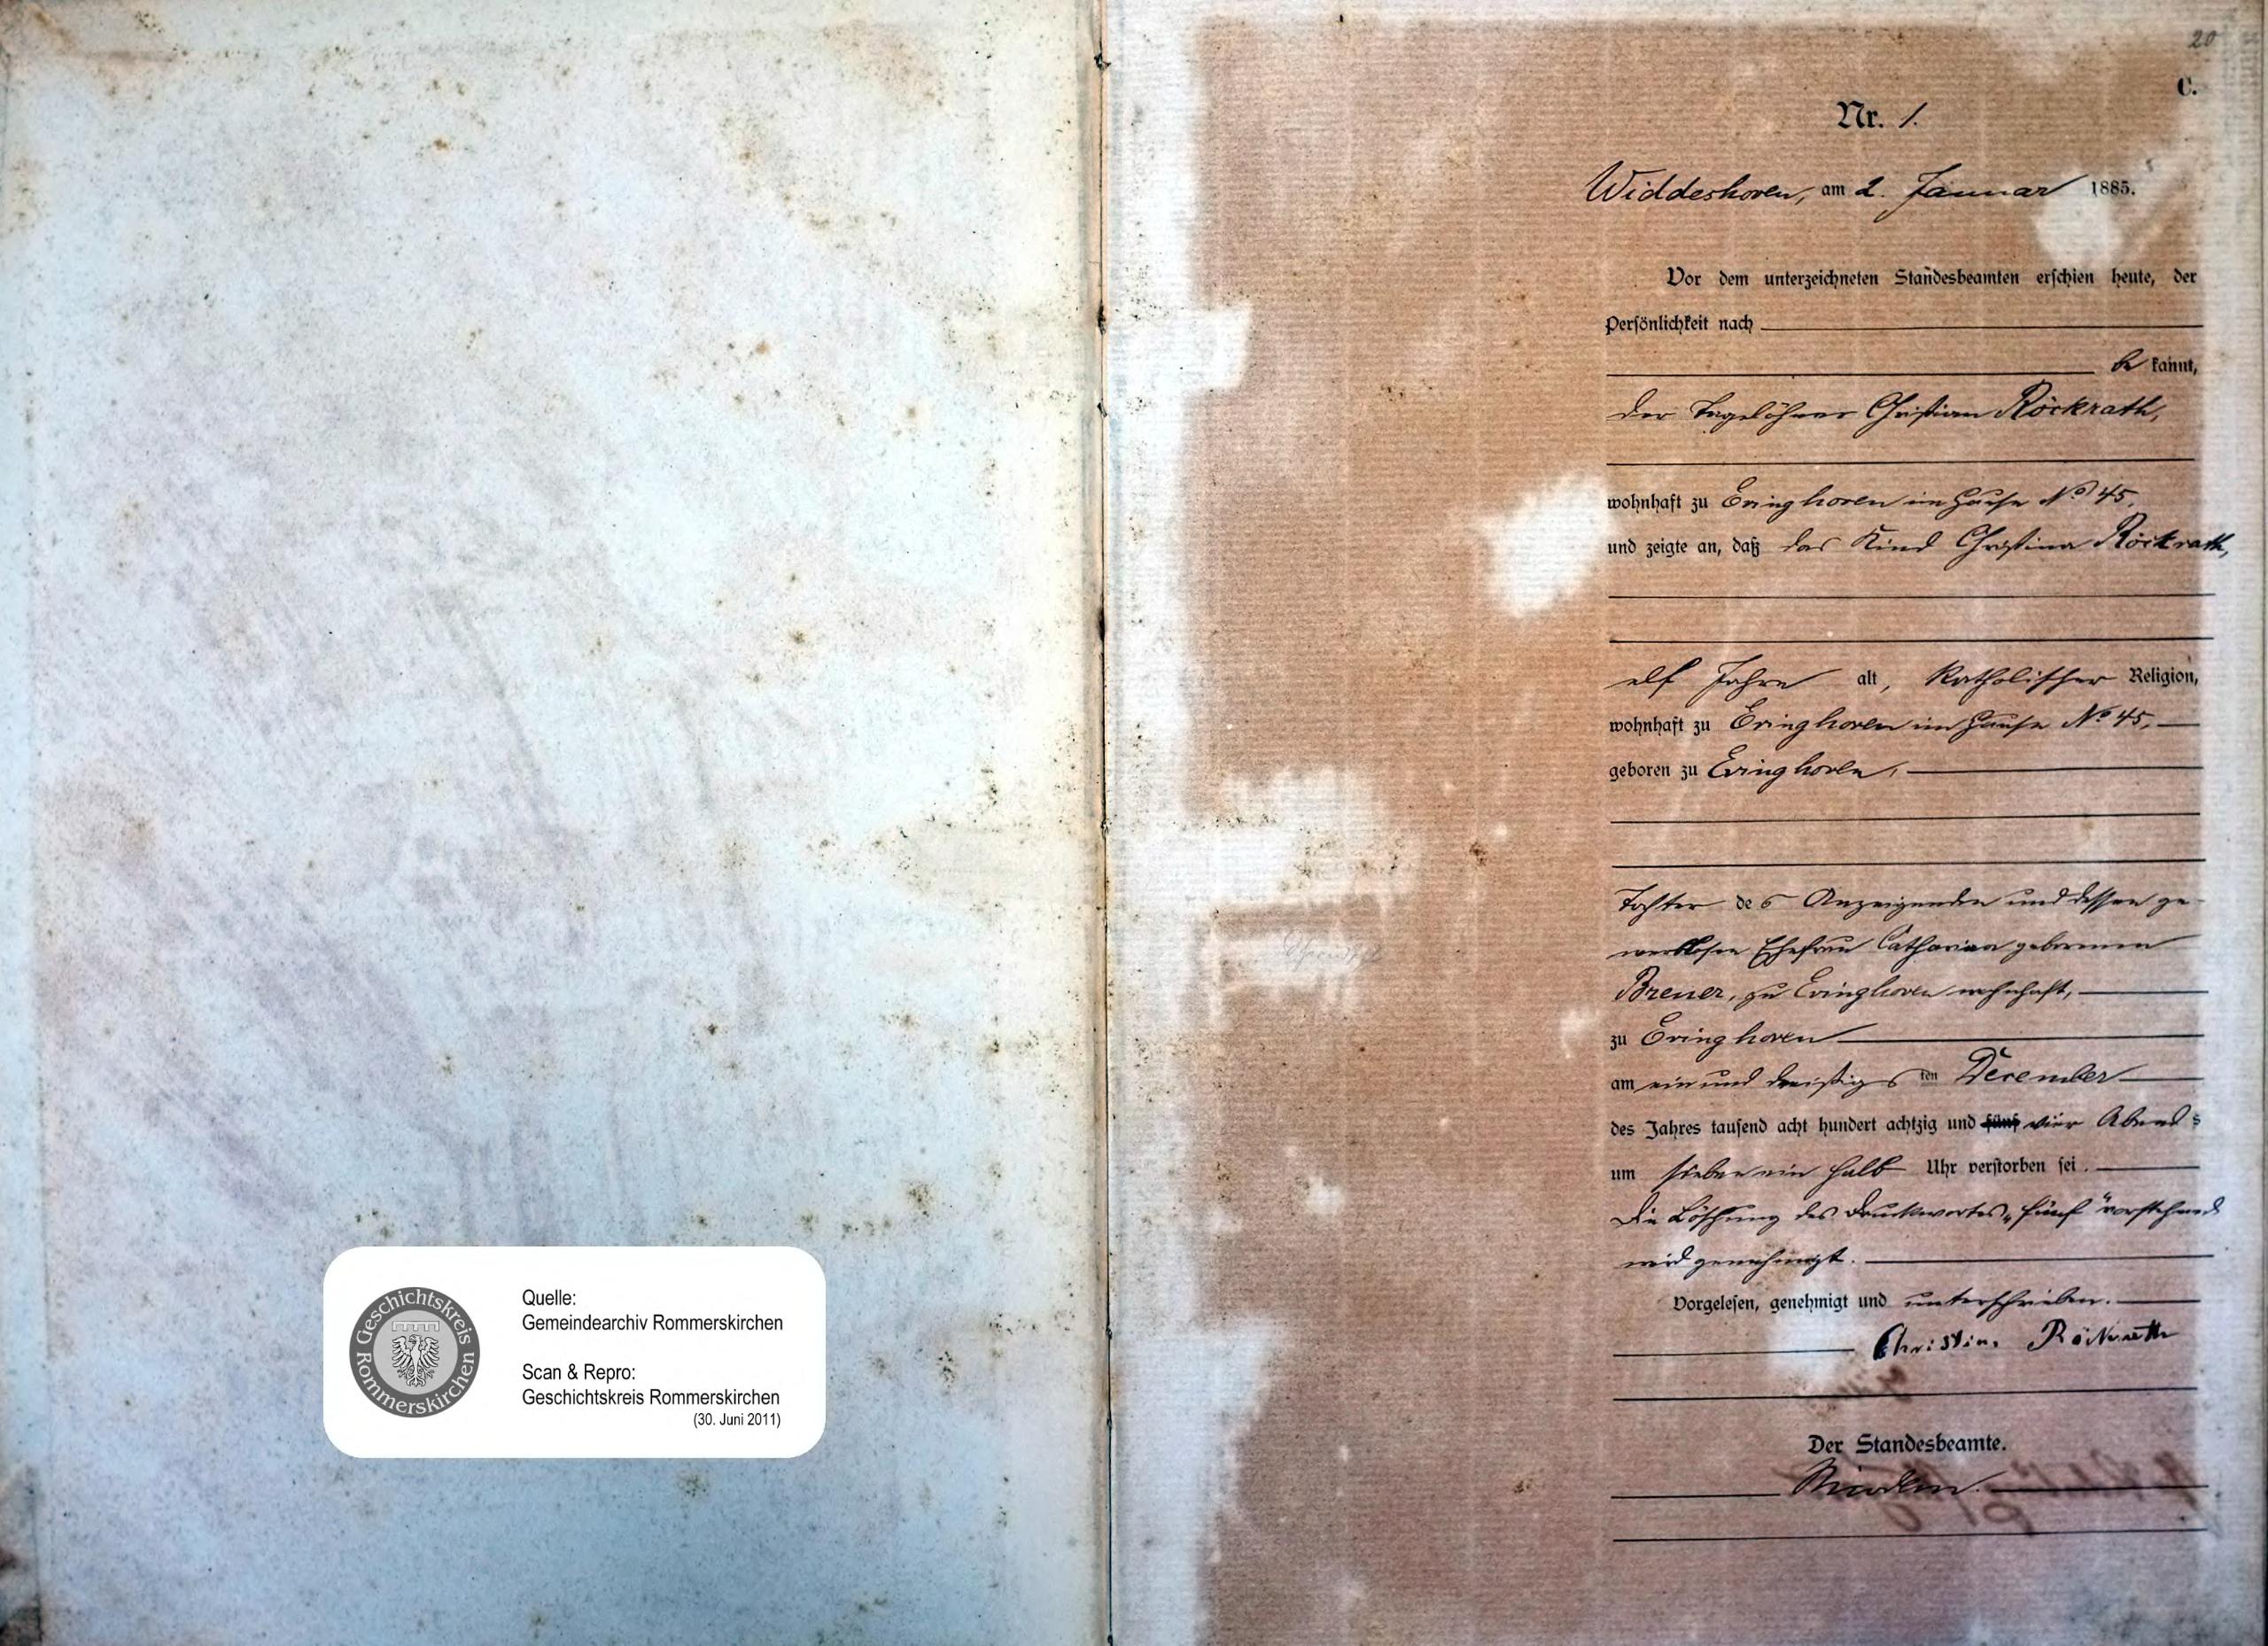 20
C.
Nr. 1.
Widdeshoven, am 2. Januar 1885.
Vor dem unterzeichneten Standesbeamten erschien heute, der
Persönlichkeit nach
be kannt,
der Tagelöhner Christian Röckrath,
wohnhaft zu Evinghoven im Hause No 45,
und zeigte an, daß das Kind Christina Röckrath,
elf Jahre alt, katholischer Religion,
wohnhaft zu Evinghoven im Hause No 45,
geboren zu Evinghoven,
Tochter des Anzeigenden und dessen ge-
werblosen Ehefrau Catharina geborenen
Breuer, zu Evinghoven wohnhaft,
zu Evinghoven
am ein und dreißigsten December
des Jahres tausend acht hundert achtzig und fünf vier Abends
um sieben ein halb Uhr verstorben sei.
Die Löschung des Druckwortes "fünf" vorstehend
wird genehmigt.
Vorgelesen, genehmigt und unterschrieben.
Christian Röckrath
Der Standesbeamte.
Quelle:
Gemeindearchiv Rommerskirchen
Scan & Repro:
Geschichtskreis Rommerskirchen
(30. Juni 2011)
Geschichtskreis
Rommerskirchen